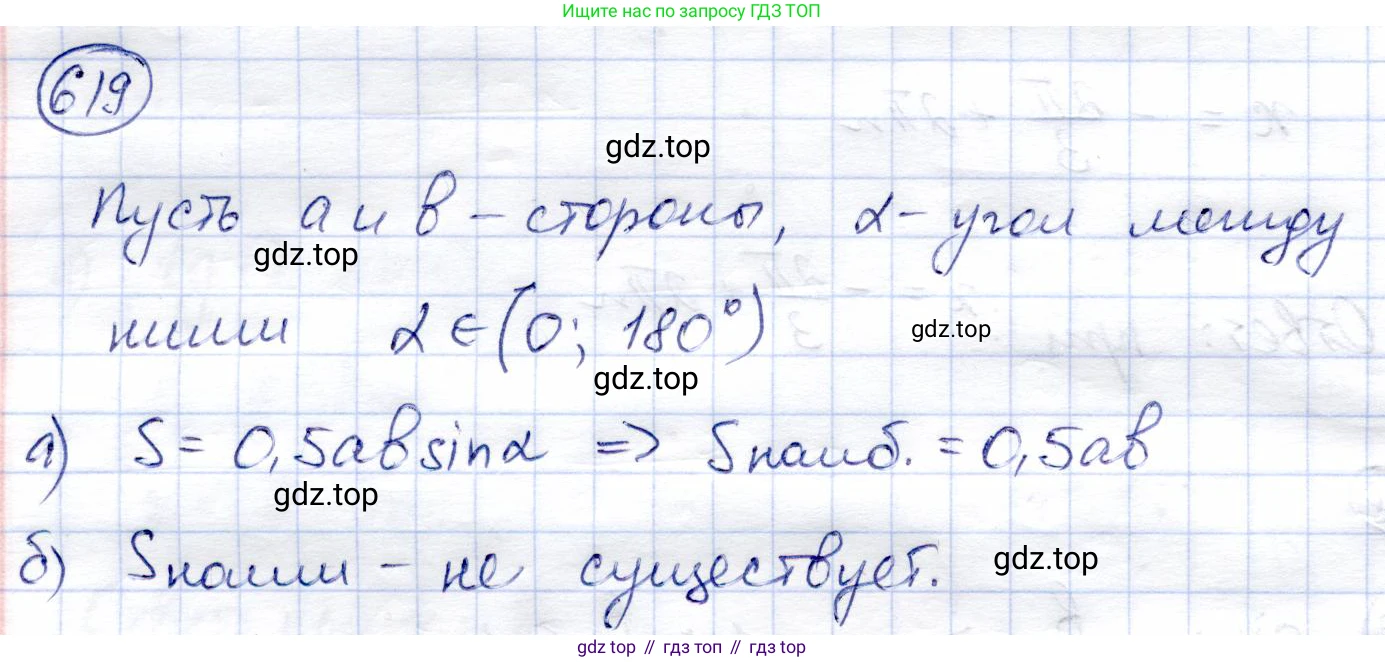 Ищите нас по запросу ГДЗ ТОП
619
gdz.top
Пусть a и b – стороны, α – угол между
gdz.top
ними α ∈ (0; 180°)
gdz.top
gdz.top
а) S = 0,5ab sinα => Sнаиб. = 0,5ab
gdz.top
б) Sнаим – не существует.
gdz.top
gdz top // гдз топ // гдз top